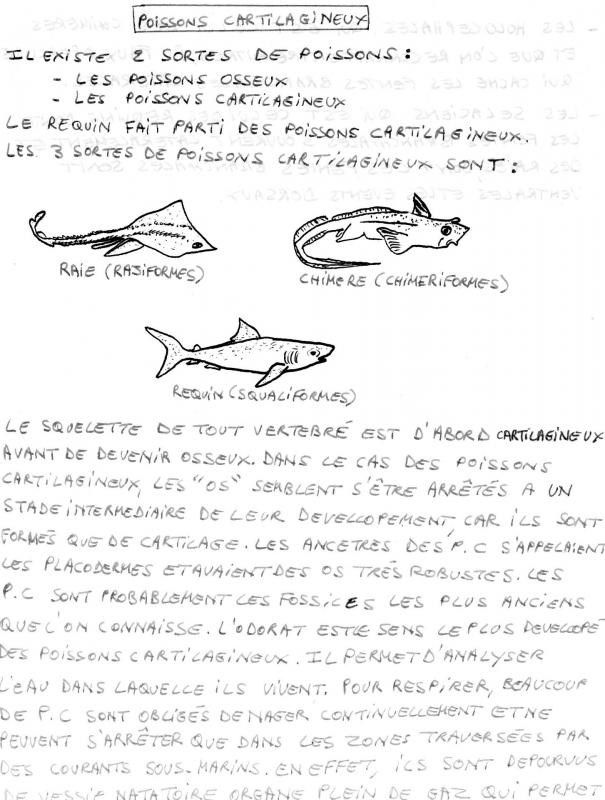 POISSONS CARTILAGINEUX
IL EXISTE 2 SORTES DE POISSONS :
- LES POISSONS OSSEUX
- LES POISSONS CARTILAGINEUX
LE REQUIN FAIT PARTI DES POISSONS CARTILAGINEUX.
LES 3 SORTES DE POISSONS CARTILAGINEUX SONT :
RAIE (RAJIFORMES)
CHIMERE (CHIMERIFORMES)
REQUIN (SQUALIFORMES)
LE SQUELETTE DE TOUT VERTEBRÉ EST D'ABORD CARTILAGINEUX
AVANT DE DEVENIR OSSEUX. DANS LE CAS DES POISSONS
CARTILAGINEUX, LES "OS" SEMBLENT S'ÊTRE ARRÊTÉS A UN
STADE INTERMEDIAIRE DE LEUR DEVELLOPEMENT, CAR ILS SONT
FORMÉS QUE DE CARTILAGE. LES ANCETRES DES P.C S'APPELAIENT
LES PLACODERMES ET AVAIENT DES OS TRÉS ROBUSTES. LES
P.C SONT PROBABLEMENT LES FOSSILES LES PLUS ANCIENS
QUE L'ON CONNAISSE. L'ODORAT EST LE SENS LE PLUS DEVELOPÉ
DES POISSONS CARTILAGINEUX. IL PERMET D'ANALYSER
L'EAU DANS LAQUELLE ILS VIVENT. POUR RESPIRER, BEAUCOUP
DE P.C SONT OBLIGÉS DE NAGER CONTINUELLEMENT ET NE
PEUVENT S'ARRÊTER QUE DANS LES ZONES TRAVERSÉES PAR
DES COURANTS SOUS-MARINS. EN EFFET, ILS SONT DEPOURVUS
DE VESSIE NATATOIRE ORGANE PLEIN DE GAZ QUI PERMET